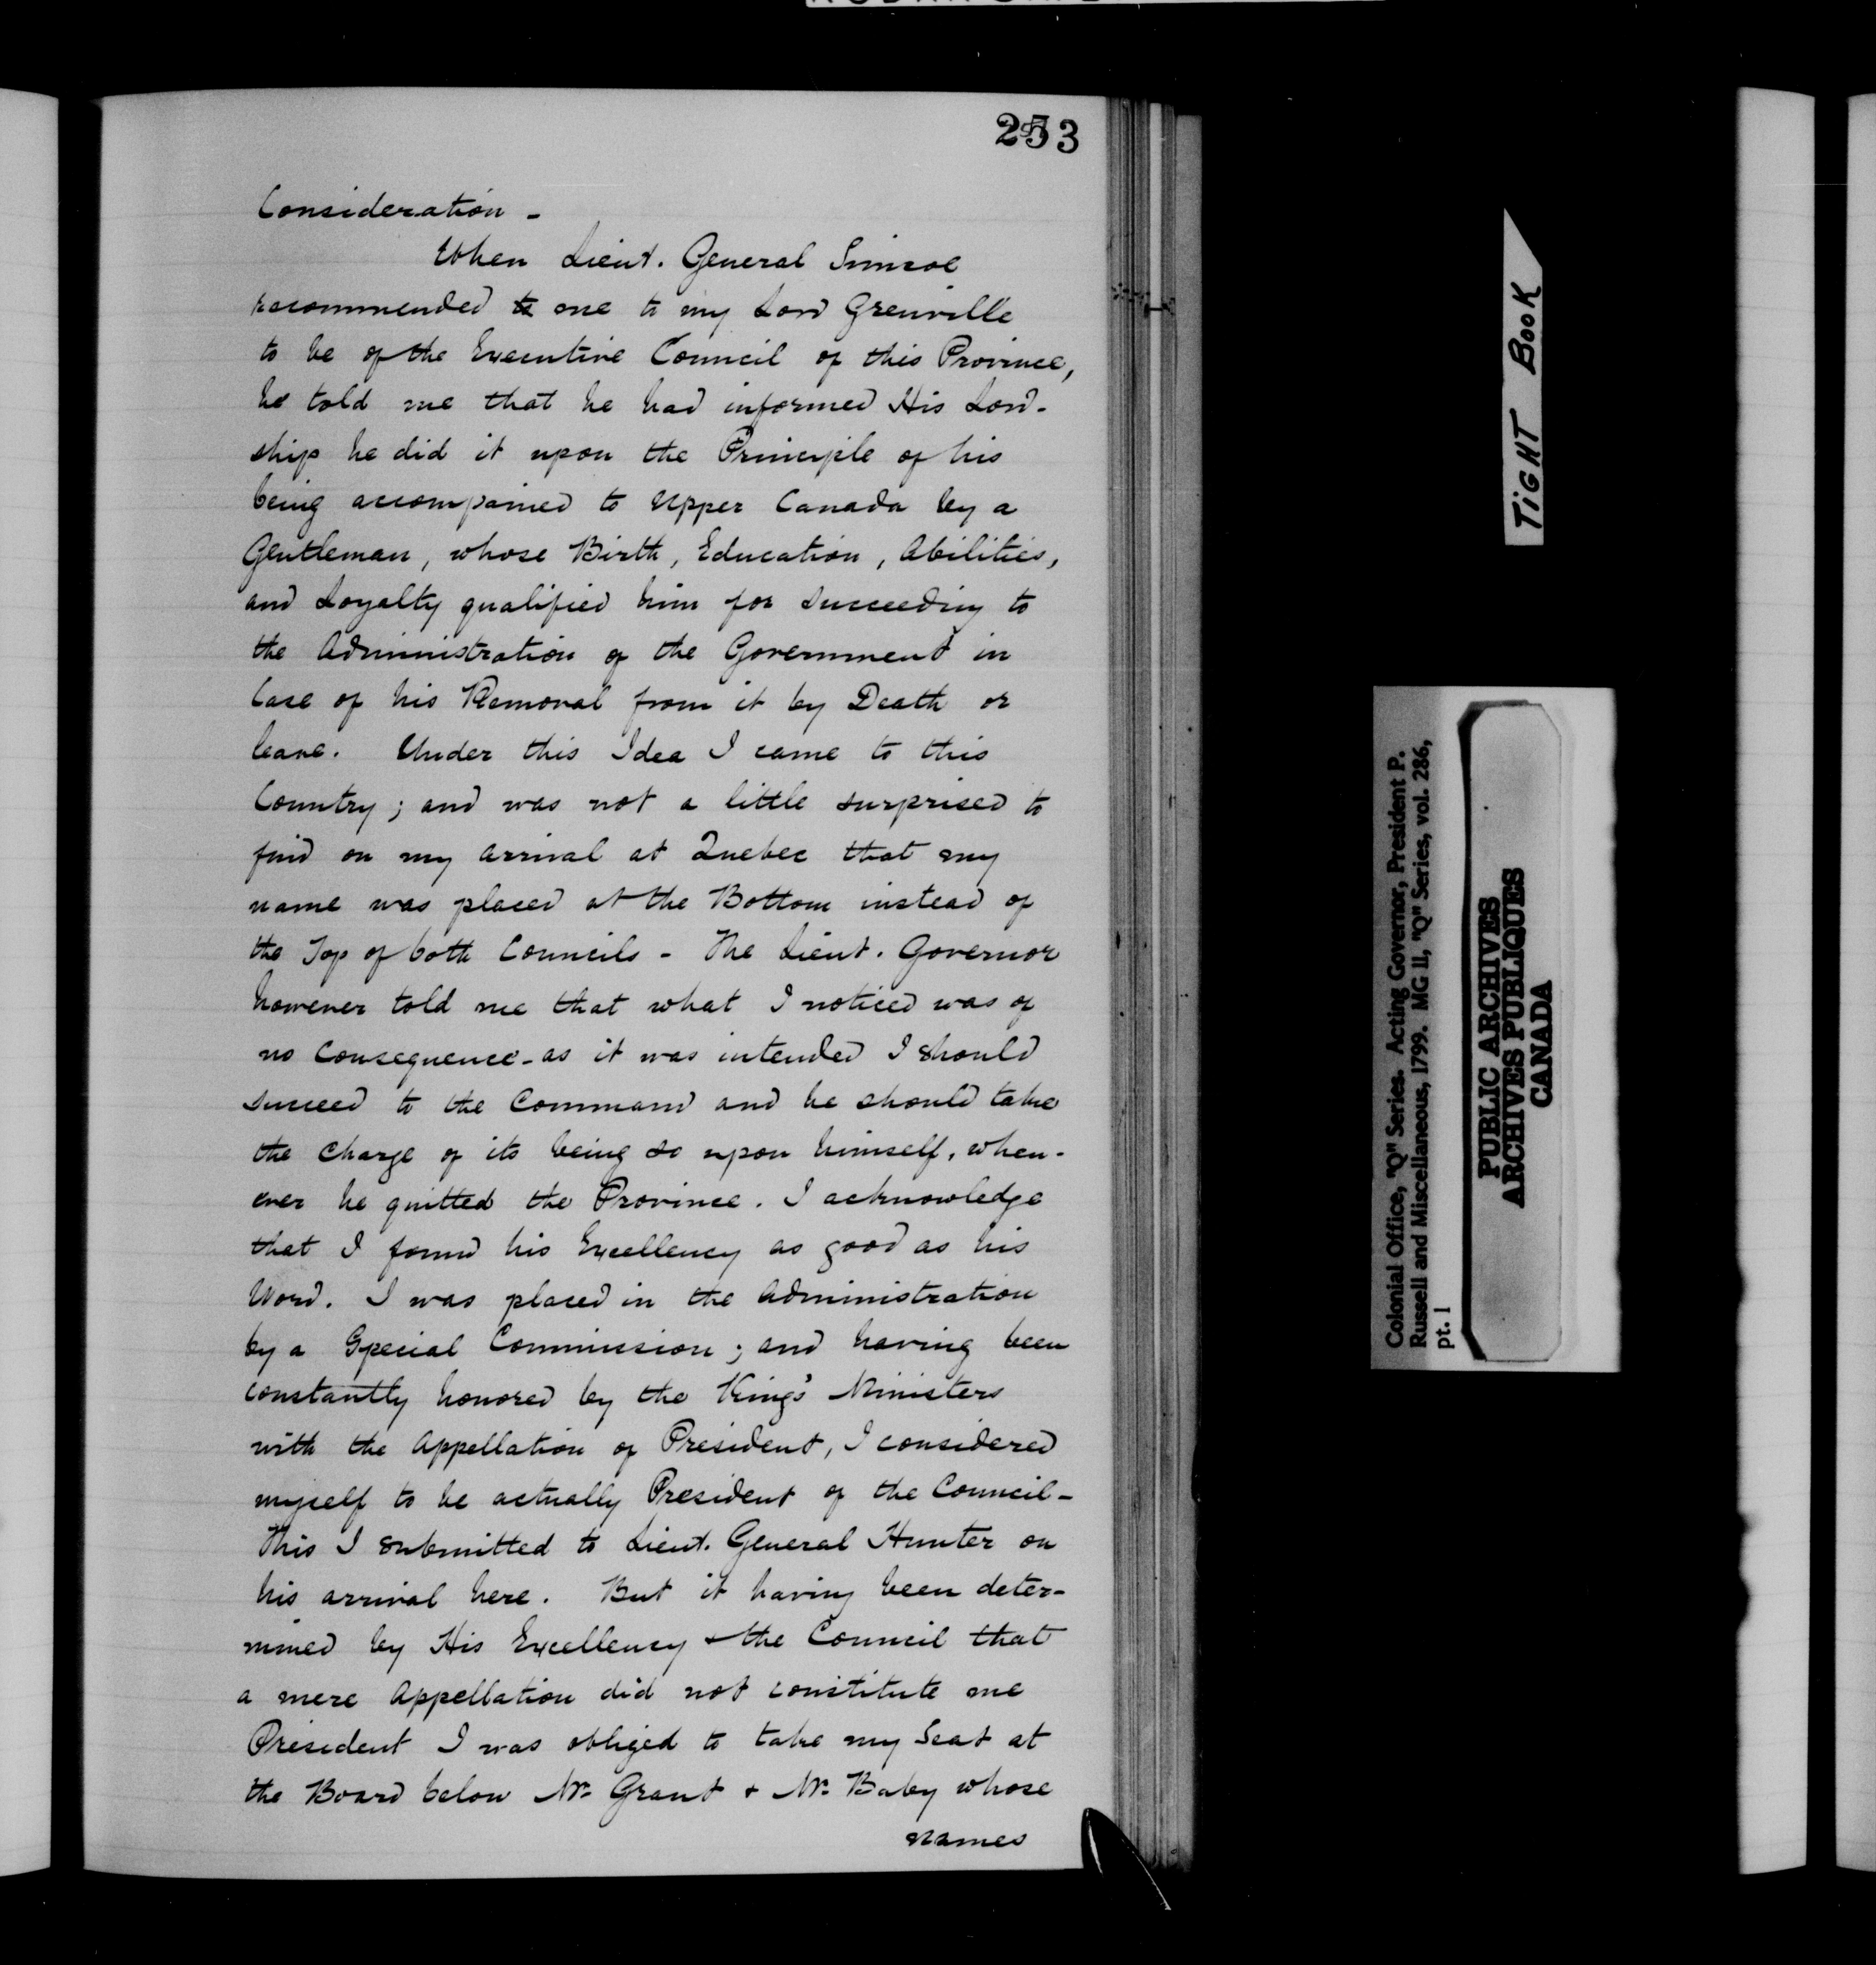 253
Consideration -
When Lieut. General Simcoe
recommended to me to my Lord Grenville
to be of the Executive Council of this Province,
he told me that he had informed His Lord-
ship he did it upon the Principle of his
being accompained to Upper Canada by a
Gentleman, whose Birth, Education, Abilities,
and Loyalty qualified him for succeeding to
the Administration of the Government in
Case of his Removal from it by Death or
leave. Under this Idea I came to this
Country; and was not a little surprised to
find on my arrival at Quebec that my
name was placed at the Bottom instead of
the Top of both Councils - The Lieut. Governor
however told me that what I noticed was of
no Consequence - as it was intended I should
succeed to the Command and he should take
the Charge of its being so upon himself, when-
ever he quitted the Province. I acknowledge
that I found his Excellency as good as his
Word. I was placed in the Administration
by a Special Commission; and having been
constantly honored by the King's Ministers
with the Appellation of President, I considered
myself to be actually President of the Council -
This I submitted to Lieut. General Hunter on
his arrival here. But it having been deter-
mined by His Excellency & the Council that
a mere Appellation did not constitute me
President I was obliged to take my Seat at
the Board below Mr. Grant & Mr. Baby whose
names
TIGHT BOOK
Colonial Office, "Q" Series. Acting Governor, President P.
Russell and Miscellaneous, 1799. MG 11, "Q" Series, vol. 286,
pt. 1
PUBLIC ARCHIVES
ARCHIVES PUBLIQUES
CANADA